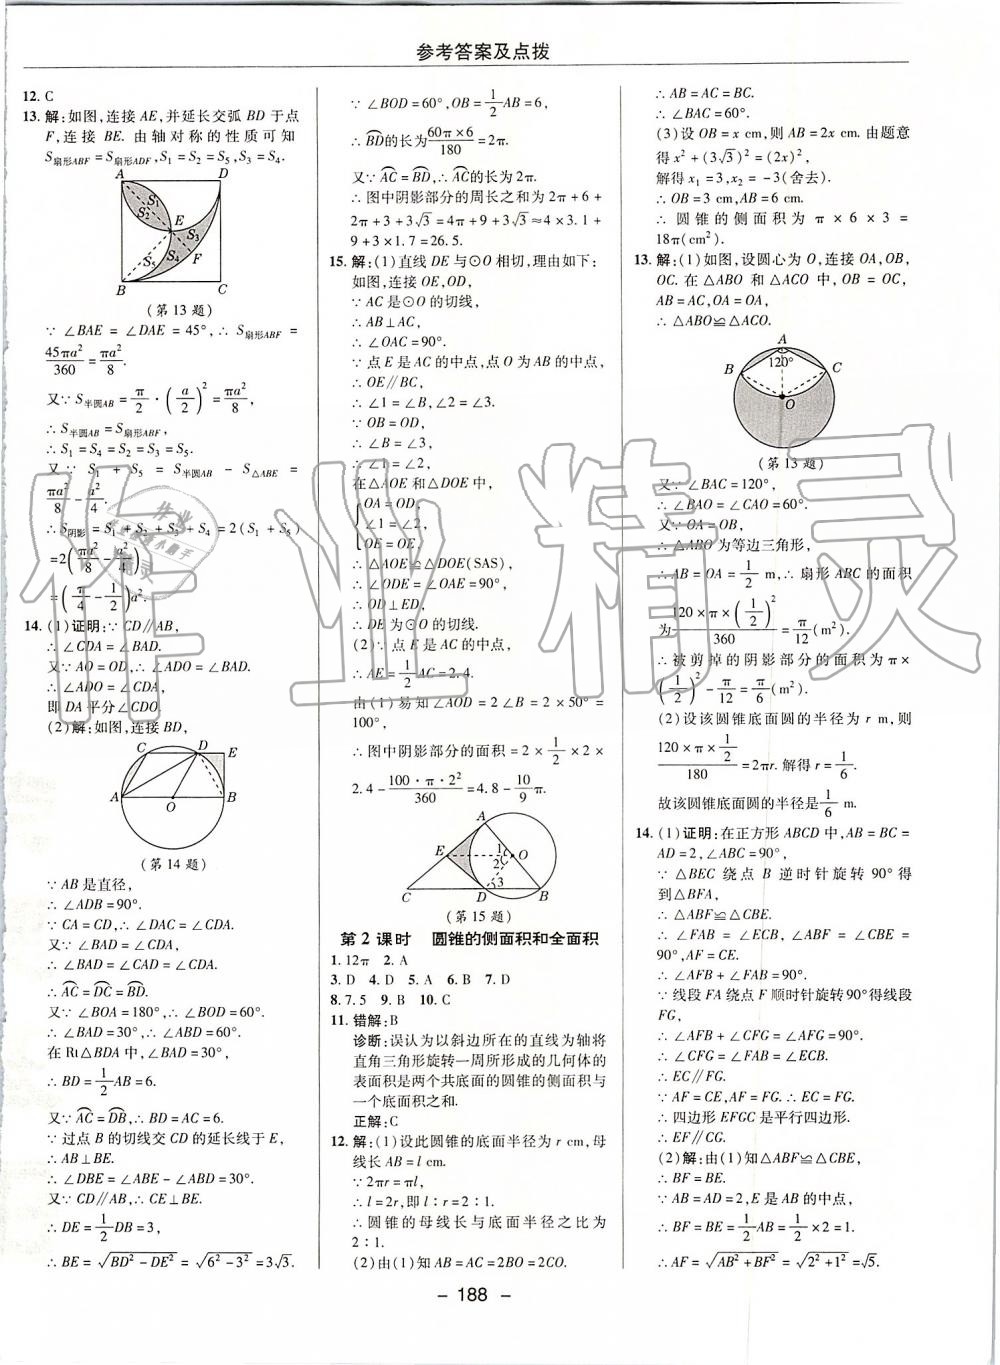 参考答案及点拨
12. C
13. 解:如图,连接 AE,并延长交弧 BD 于点
F,连接 BE. 由轴对称的性质可知
S扇形ABF = S扇形ADF, S₁ = S₂ = S₅, S₃ = S₄.
A D
S₁
S₂
E
S₃
S₄
S₅
F
B C
(第 13 题)
∵ ∠BAE = ∠DAE = 45°,∴ S扇形ABF =
45πa²/360 = πa²/8.
又∵ S半圆AB = π/2 · (a/2)² = πa²/8,
∴ S半圆AB = S扇形ABF,
∴ S₁ = S₄ = S₂ = S₃ = S₅.
又∵ S₁ + S₅ = S半圆AB − S△ABE =
πa²/8 − a²/4,
∴ S阴影 = S₁ + S₂ + S₃ + S₄ = 2(S₁ + S₅)
=2(πa²/8 − a²/4)
=(π/4 − 1/2)a².
14. (1)证明:∵ CD∥AB,
∴ ∠CDA = ∠BAD.
又∵ AO = OD,∴ ∠ADO = ∠BAD.
∴ ∠ADO = ∠CDA,
即 DA 平分∠CDO.
(2)解:如图,连接 BD,
C D E
A O B
(第 14 题)
∵ AB 是直径,
∴ ∠ADB = 90°.
∵ CA = CD,∴ ∠DAC = ∠CDA.
又∵ ∠BAD = ∠CDA,
∴ ∠DAC = ∠BAD,
∴ A͡C = D͡C = B͡D.
又∵ ∠BOA = 180°,∴ ∠BOD = 60°,
∴ ∠BAD = 30°,∴ ∠ABD = 60°.
在 Rt△BDA 中,∠BAD = 30°,
∴ BD = 1/2 AB = 6.
又∵ A͡C = D͡B,∴ BD = AC = 6.
∵ 过点 B 的切线交 CD 的延长线于 E,
∴ AB⊥BE.
∴ ∠DBE = ∠ABE − ∠ABD = 30°.
又∵ CD∥AB,∴ CE⊥BE.
∴ DE = 1/2 DB = 3,
∴ BE = √(BD² − DE²) = √(6² − 3²) = 3√3.
∵ ∠BOD = 60°, OB = 1/2 AB = 6,
∴ B͡D的长为 60π × 6/180 = 2π.
又∵ A͡C = B͡D,∴ A͡C的长为 2π.
∴ 图中阴影部分的周长之和为 2π + 6 +
2π + 3 + 3√3 = 4π + 9 + 3√3 ≈ 4 × 3.1
+ 9 + 3 × 1.7 = 26.5.
15. 解:(1)直线 DE 与⊙O 相切,理由如下:
如图,连接 OE,OD,
∵ AC 是⊙O 的切线,
∴ AB⊥AC,
∴ ∠OAC = 90°.
∵ 点 E 是 AC 的中点,点 O 为 AB 的中点,
∴ OE∥BC,
∴ ∠1 = ∠B,∠2 = ∠3.
∵ OB = OD,
∴ ∠B = ∠3,
∴ ∠1 = ∠2.
在△AOE 和△DOE 中,
OA = OD,
∠1 = ∠2,
OE = OE,
∴ △AOE≌△DOE(SAS),
∴ ∠ODE = ∠OAE = 90°,
∴ OD⊥ED,
∴ DE 为⊙O 的切线.
(2)∵ 点 E 是 AC 的中点,
∴ AE = 1/2 AC = 2.4.
由(1)易知∠AOD = 2∠B = 2 × 50° =
100°,
∴ 图中阴影部分的面积 = 2 × 1/2 × 2 ×
2.4 − 100 · π · 2²/360 = 4.8 − 10/9 π.
A
E 1 O
2
3
C D B
(第 15 题)
第 2 课时 圆锥的侧面积和全面积
1. 12π 2. A
3. D 4. D 5. A 6. B 7. D
8. 7.5 9. B 10. C
11. 错解:B
诊断:误认为以斜边所在的直线为轴将
直角三角形旋转一周所形成的几何体的
表面积是两个共底面的圆锥的侧面积与
一个底面积之和.
正解:C
12. 解:(1)设此圆锥的底面半径为 r cm,母
线长 AB = l cm.
∵ 2πr = πl,
∴ l = 2r,即 l∶r = 2∶1.
∴ 圆锥的母线长与底面半径之比为
2∶1.
(2)由(1)知 AB = AC = 2BO = 2CO.
∴ AB = AC = BC.
∴ ∠BAC = 60°.
(3)设 OB = x cm,则 AB = 2x cm. 由题意
得 x² + (3√3)² = (2x)²,
解得 x₁ = 3, x₂ = −3(舍去).
∴ OB = 3 cm, AB = 6 cm.
∴ 圆锥的侧面积为 π × 6 × 3 =
18π(cm²).
13. 解:(1)如图,设圆心为 O,连接 OA,OB,
OC. 在△ABO 和△ACO 中,OB = OC,
AB = AC, OA = OA,
∴ △ABO≌△ACO.
A
120°
B C
O
(第 13 题)
又∵ ∠BAC = 120°,
∴ ∠BAO = ∠CAO = 60°.
又∵ OA = OB,
∴ △ABO 为等边三角形,
∴ AB = OA = 1/2 m,∴ 扇形 ABC 的面积
为 120 × π × (1/2)²/360 = π/12 (m²).
∴ 被剪掉的阴影部分的面积为 π ×
(1/2)² − π/12 = π/6 (m²).
(2)设该圆锥底面圆的半径为 r m,则
120 × π × 1/2/180 = 2πr. 解得 r = 1/6.
故该圆锥底面圆的半径是 1/6 m.
14. (1)证明:在正方形 ABCD 中,AB = BC =
AD = 2,∠ABC = 90°,
∵ △BEC 绕点 B 逆时针旋转 90°得
到△BFA,
∴ △ABF≌△CBE.
∴ ∠FAB = ∠ECB,∠ABF = ∠CBE =
90°, AF = CE.
∴ ∠AFB + ∠FAB = 90°.
∵ 线段 FA 绕点 F 顺时针旋转90°得线段
FG,
∴ ∠AFB + ∠CFG = ∠AFG = 90°.
∴ ∠CFG = ∠FAB = ∠ECB.
∴ EC∥FG.
∵ AF = CE, AF = FG.∴ EC = FG.
∴ 四边形 EFGC 是平行四边形.
∴ EF∥CG.
(2)解:由(1)知△ABF≌△CBE,
∴ BF = BE.
∵ AB = AD = 2, E 是 AB 的中点,
∴ BF = BE = 1/2 AB = 1/2 × 2 = 1.
∴ AF = √(AB² + BF²) = √(2² + 1²) = √5.
- 188 -
作业精灵